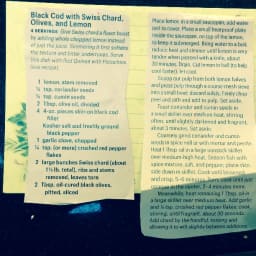 Black Cod with Swiss Chard,
Olives, and Lemon
4 SERVINGS Give Swiss chard a flavor boost
by adding whole chopped lemon instead
of just the juice. Simmering it first softens
the texture and bitter undertones. Serve
this dish with Red Quinoa with Pistachios
(see recipe).
1 lemon, stem removed
¼ tsp. coriander seeds
¼ tsp. cumin seeds
2 Tbsp. olive oil, divided
4 4-oz. pieces skin-on black cod
fillet
Kosher salt and freshly ground
black pepper
1 garlic clove, chopped
¼ tsp. (or more) crushed red pepper
flakes
2 large bunches Swiss chard (about
1½ lb. total), ribs and stems
removed, leaves torn
2 Tbsp. oil-cured black olives,
pitted, sliced
Place lemon in a small saucepan, add water
just to cover. Place a small heatproof plate
inside the saucepan, on top of the lemon,
to keep it submerged. Bring water to a boil,
reduce heat and simmer until lemon is very
tender when passed with a knife, about
30 minutes. Drain. Let lemon in half (to help
cool faster); let cool.
Scoop out pulp from both lemon halves
and press pulp through a coarse-mesh sieve
into a small bowl; discard solids. Finely chop
peel and pith and add to pulp. Set aside.
Toast coriander and cumin seeds in
a small skillet over medium heat, stirring
often, until slightly darkened and fragrant,
about 3 minutes. Set aside.
Coarsely grind coriander and cumin
seeds in spice mill or with mortar and pestle.
Heat 1 Tbsp. oil in a large nonstick skillet
over medium-high heat. Season fish with
spice mixture, salt, and pepper; place skin-
side down in skillet. Cook until
and crisp, 5–6 minutes.
opaque in the center, 2–4 minutes more.
Meanwhile, heat remaining 1 Tbsp. oil in
a large skillet over medium heat. Add garlic
and ¼ tsp. crushed red pepper flakes; cook,
stirring, until fragrant, about 30 seconds.
Add chard by the handful, tossing and
allowing it to wilt slightly between additions